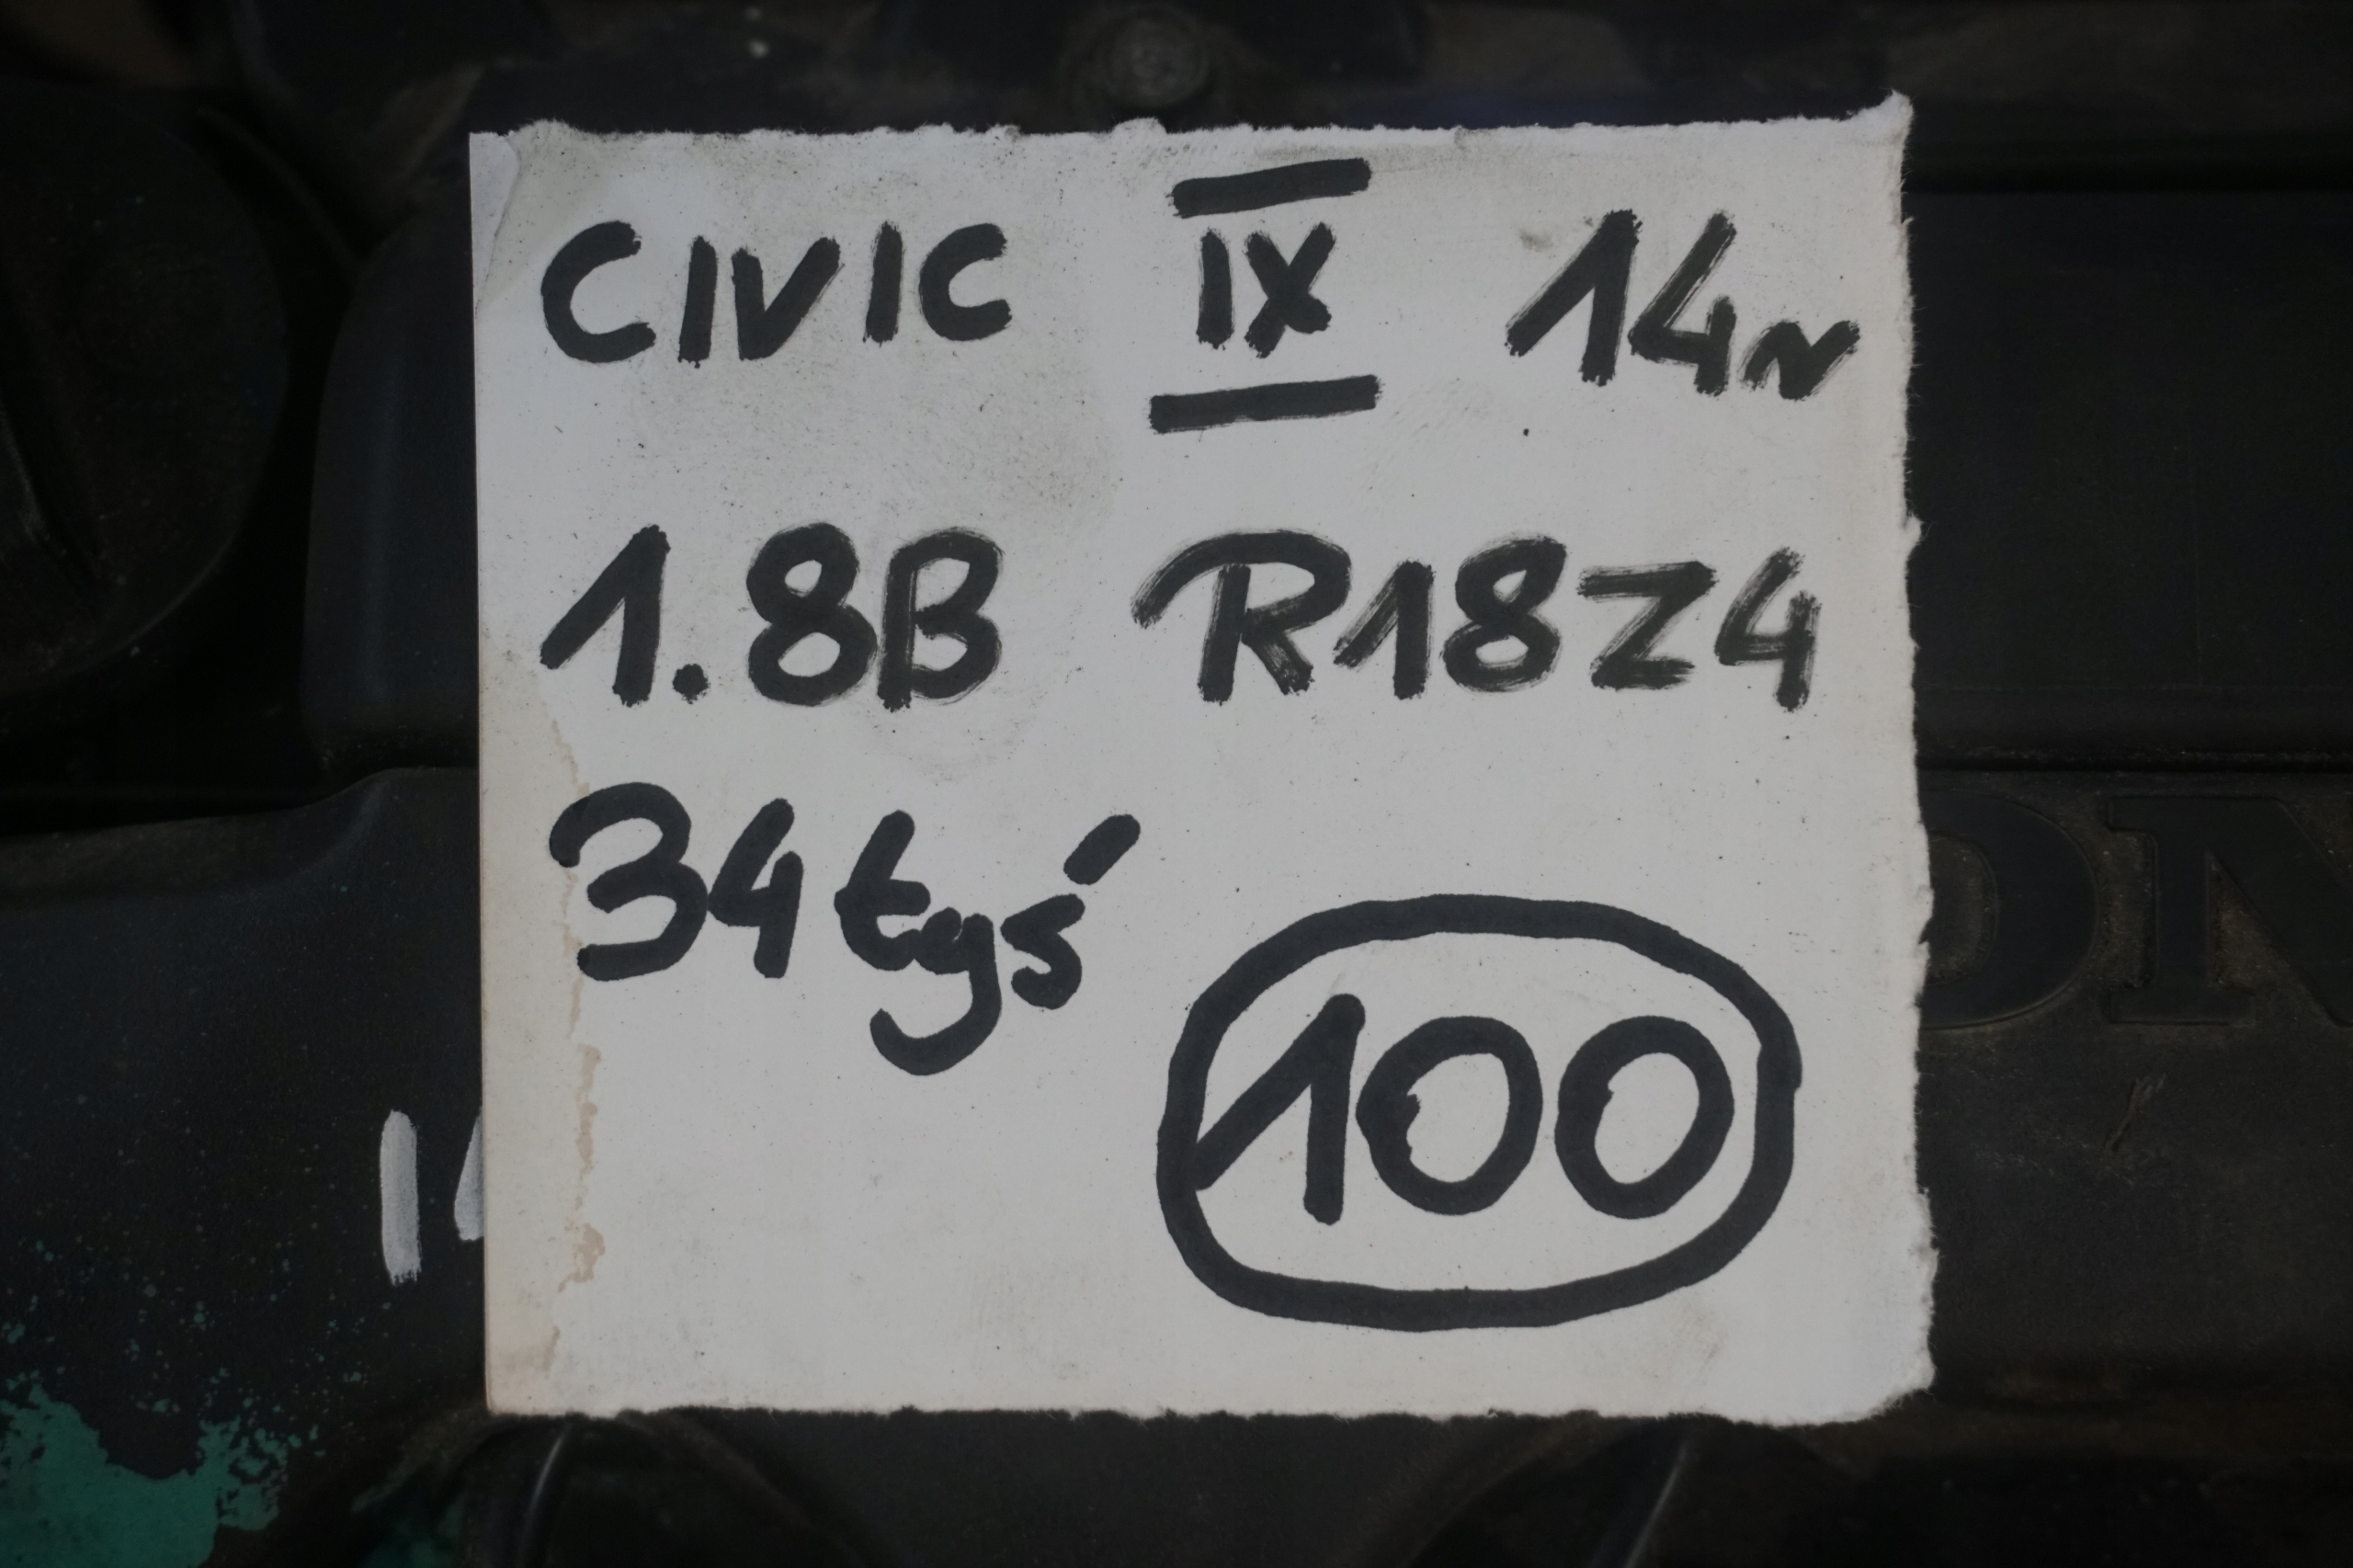 CIVIC IX 14r
1.8B R18Z4
34tyś
100